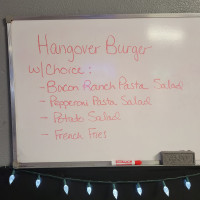 Hangover Burger
w/Choice:
- Bacon Ranch Pasta Salad
- Pepperoni Pasta Salad
- Potato Salad
- French Fries